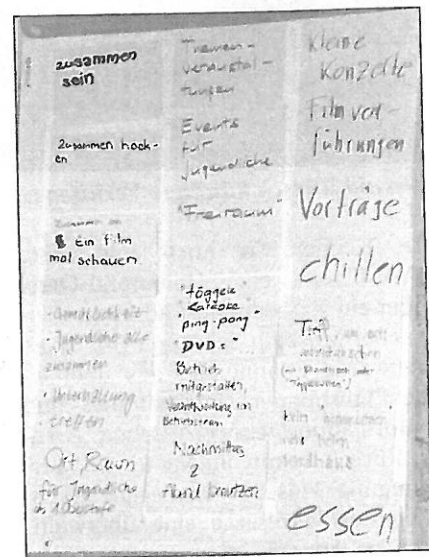 zusammen
sein
Zusammen hock-
en
Ein film
mal schauen
• Gemütlichkeit
• Jugendliche alle
zusammen
• Unterhaltung
• treffen
Ort, Raum
für Jugendliche
Themen-
veranstal-
tungen
Events
für
jugendliche
"Freiraum"
"töggele
Karaoke
ping-pong"
"DVD:"
Betrieb
mitgestalten,
Verantwortung im
Betriebsteam
Nachmittag
2
Abend
kleine
Konzerte
Film vor-
führungen
Vorträge
chillen
essen